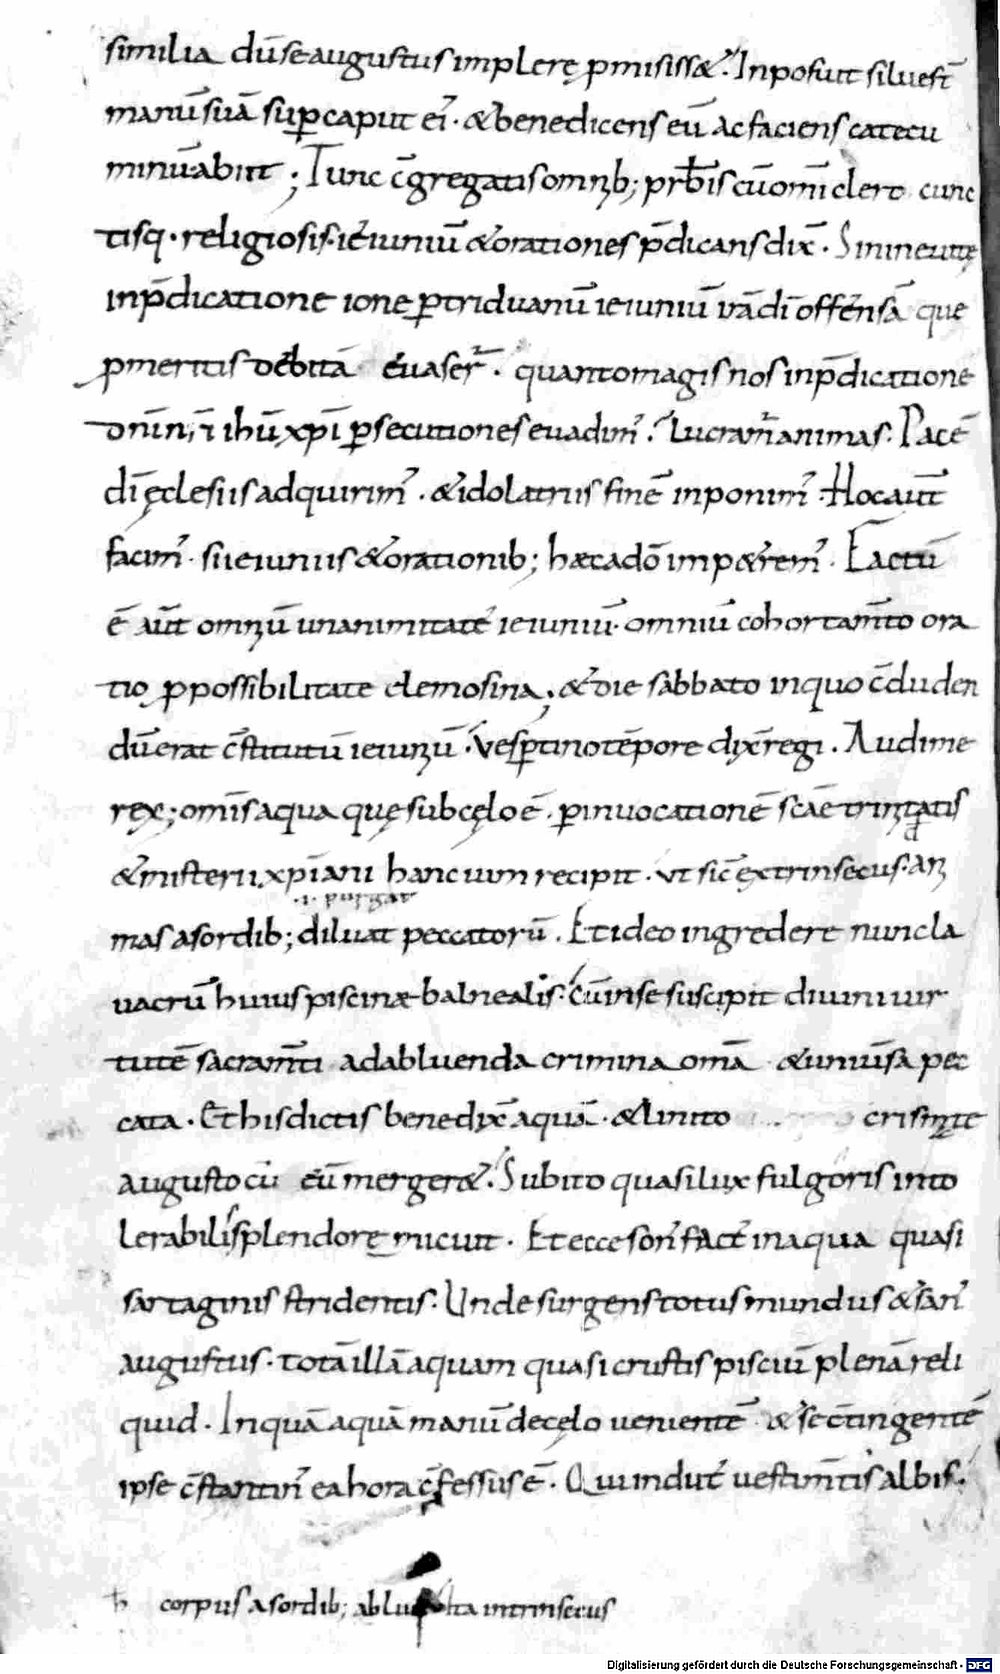 similia dū se augustus implerę ꝓmisiss&. Inposuit siluest̄
manū suā suꝑ caput ei᾿. & benedicens eū ac faciens catecu
minū abiit ; Tunc c̄gregatis omnib; prb̄is cū omī clero cunc
tisq· religiosis ieiuniū & orationes p̄dicans dix̄. Si nineuitę
in p̄dicatione ione ꝑ triduanū ieiuniū irā dī offensā que
ꝓ meritis debitā euaser̄. quanto magis nos in p̄dicatione
dnī nr̄ī ihū xpī ꝑsecutiones euadim᾿. Lucram᾿ animas. Pacē
dī ęclesiis adquirim᾿. & idolatriis finē inponim᾿. Hoc aut̄
facim᾿. si ieiuniis & orationib; hæc a dō impetrem᾿. Factū
ē aut̄ omniū unanimitate ieiuniū. omniū cohortam̄to ora
tio ꝓ possibilitate elemosina ; & die sabbato in quo c̄cluden
dū erat c̄stitutū ieiuniū. Vesꝑtino tēpore dix̄ regi. Audi me
rex ; omīs aqua quę sub cęlo ē. ꝑ inuocationē sc̄ae trinitatis
& misterii xp̄iani hanc uim recipit. ut sic̄ extrinsecus. ani
·i· purgat
mas a sordib; diluat peccatorū. Et ideo ingredere nunc la
uacrū huius piscinæ balnealis. Cū in se suscipit diuini uir
tutē sacram̄ti ad abluenda crimina omā & uniuersa pec
cata. Et his dictis benedix̄ aquā. & linito crismate
augusto cū eū merger&. Subito quasi lux fulgoris into
lerabilis splendorę micuit. Et ecce son᾿ fact᾿ in aqua quasi
sartaginis stridentis. Unde surgens totus mundus & san᾿
augustus. totā illā aquam quasi crustis pisciū plenā reli
quid. In quā aquā manū de cęlo uenientē & se c̄tingentē
ipse c̄stantin᾿ ea hora c̄fessus ē. Qui indut᾿ uestim̄tis albis.
h̄ corpus a sordib; ita intrinsecus
Digitalisierung gefördert durch die Deutsche Forschungsgemeinschaft - DFG